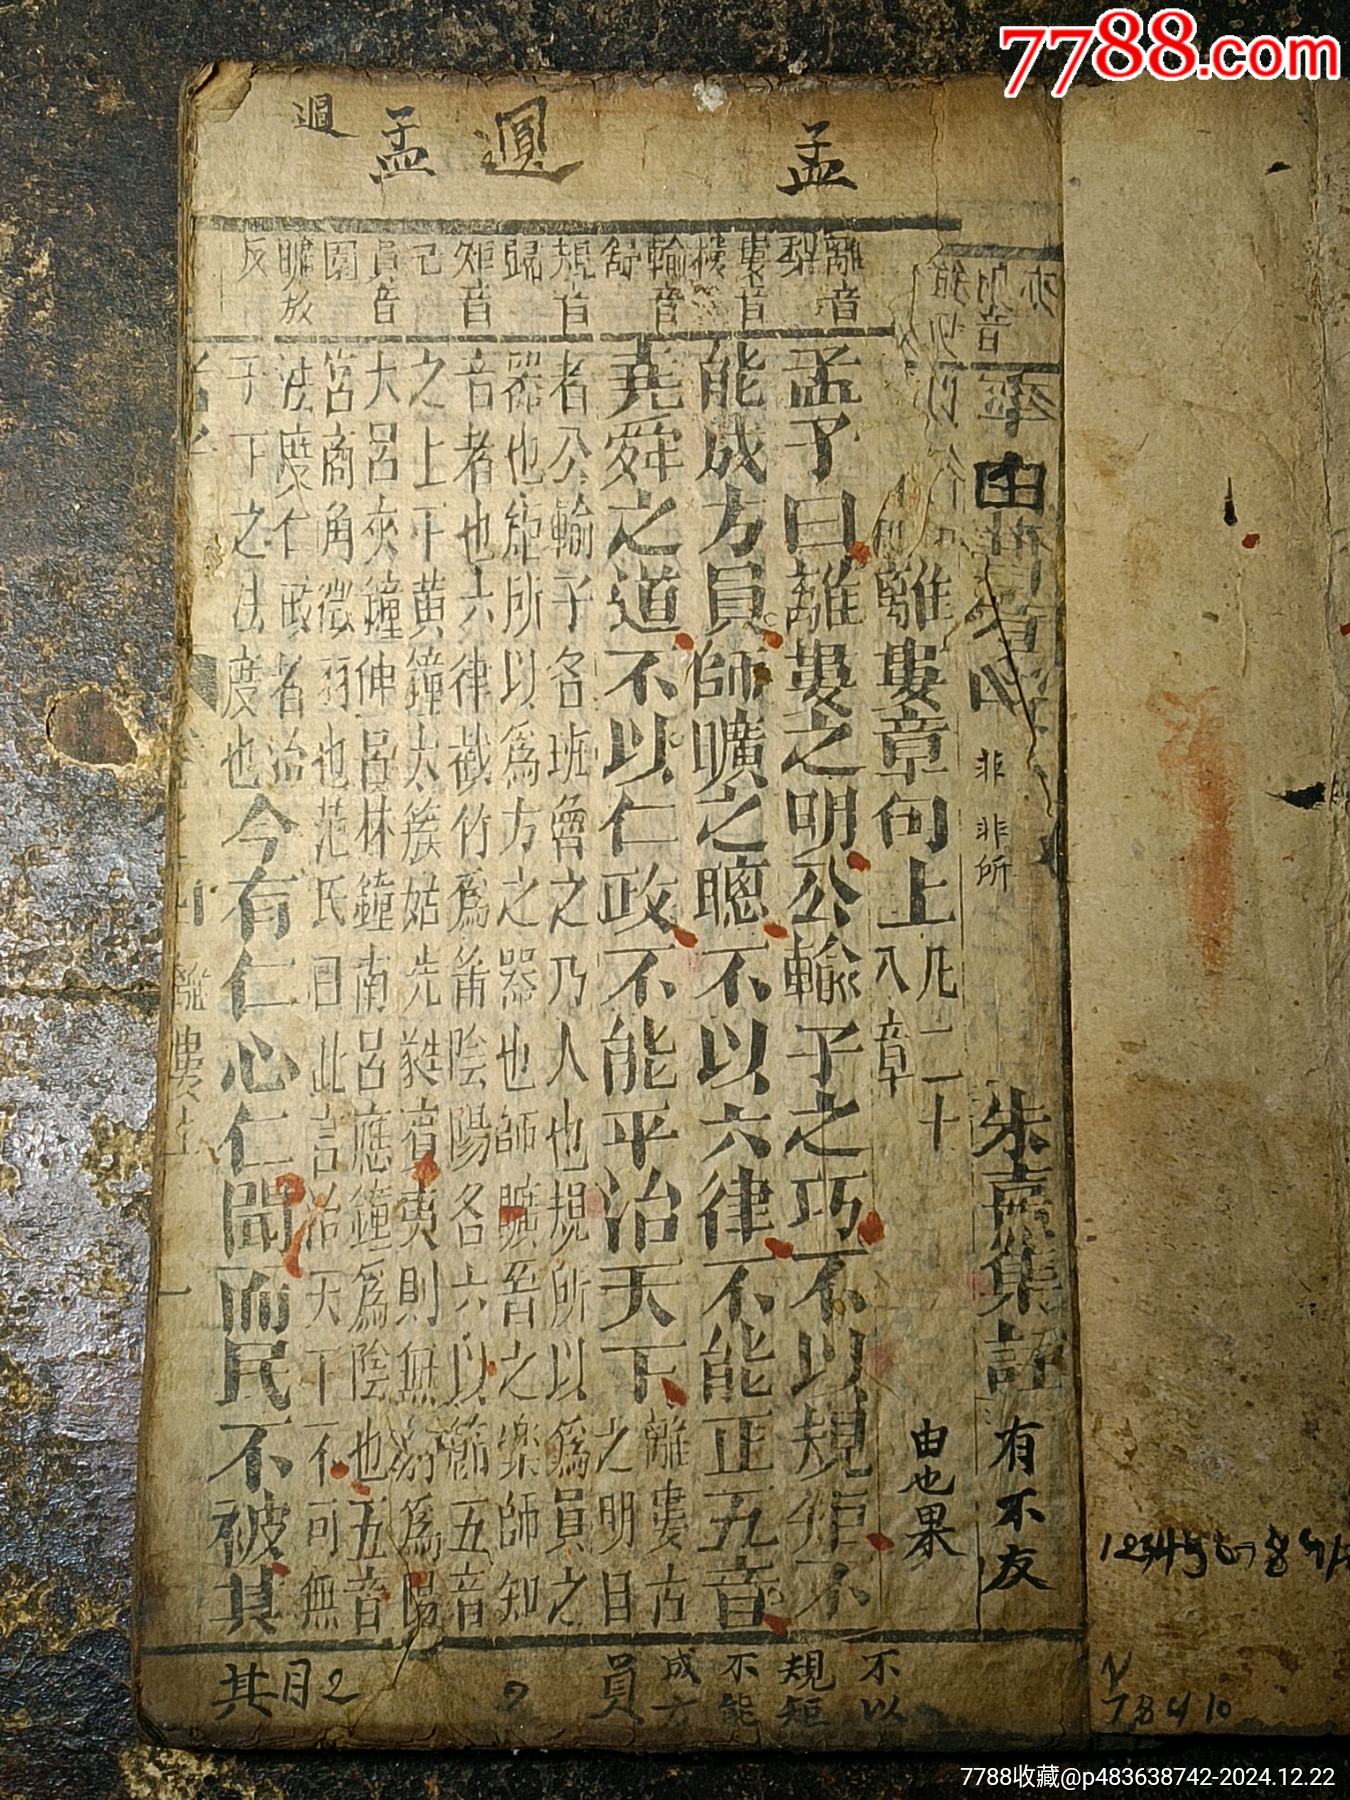 7788.com
孟
逥
孟
過
離音
梨
婁音
樓
輸音
舒
規音
歸
矩音
己
員音
圜
曠放
反
朱熹集註
有不友
非
非所
離婁章句上
凡二十
八章
由也果
孟子曰離婁之明公輸子之巧不以規矩不
能成方員師曠之聰不以六律不能正五音
堯舜之道不以仁政不能平治天下
離婁古
之明目
者公輸子名班魯之乃人也規所以為員之
器也矩所以為方之器也師曠晉之樂師知
音者也六律截竹為筩陰陽各六以節五音
之上下黃鐘太簇姑先蕤賓夷則無射為陽
大呂夾鐘仲呂林鐘南呂應鐘為陰也五音
宮商角徵羽也范氏曰此言治天下不可無
法度仁政者治
子下之法度也
今有仁心仁聞而民不被其
離婁上
一
不以
規矩
不能
成方
員
2
其月2
7 8 9 10
7788收藏@p483638742-2024.12.22